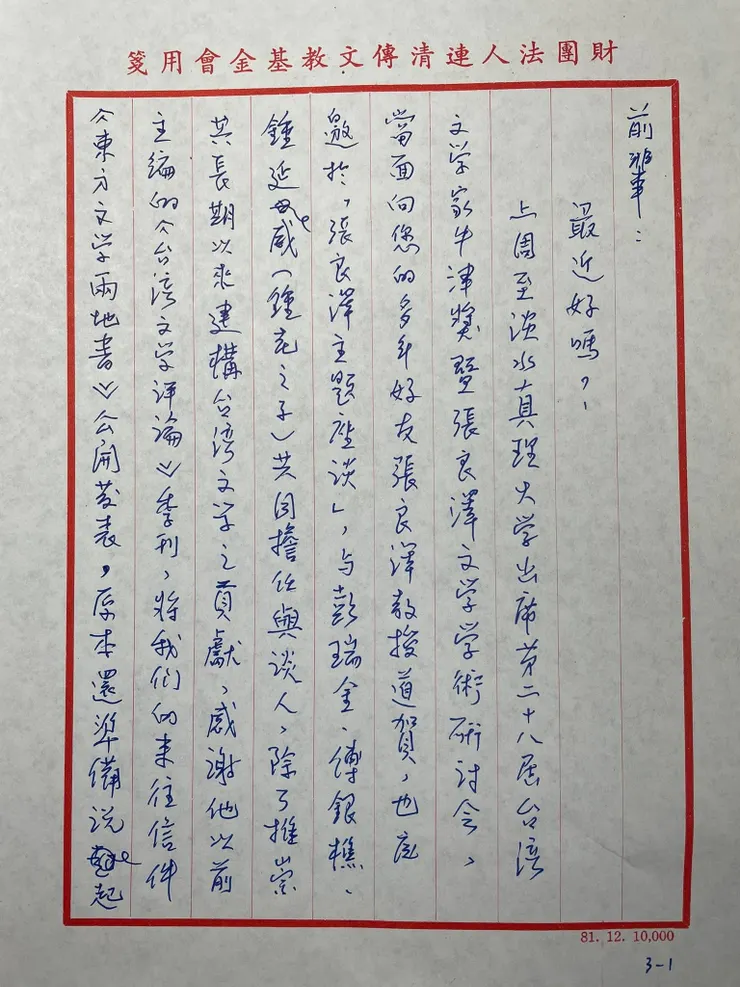 財團法人連清傳文教基金會用箋
前輩：
最近好嗎，！
上周至淡水真理大学出席第二十八屆台湾
文学家牛津獎暨張良澤文学学術研討会，
當面向您的多年好友張良澤教授道賀，也应
邀於，張良澤主題座谈」，与彭瑞金、傅銀樵、
鍾延威（鍾老之子）共同擔任與談人，除了推崇
其長期以來建構台湾文学之貢獻，感謝他以前
主編的《台湾文学评論》季刊，将我们的来往信件
《東方文学兩地書》公開发表，原本還準備说起
81. 12. 10,000
3-1